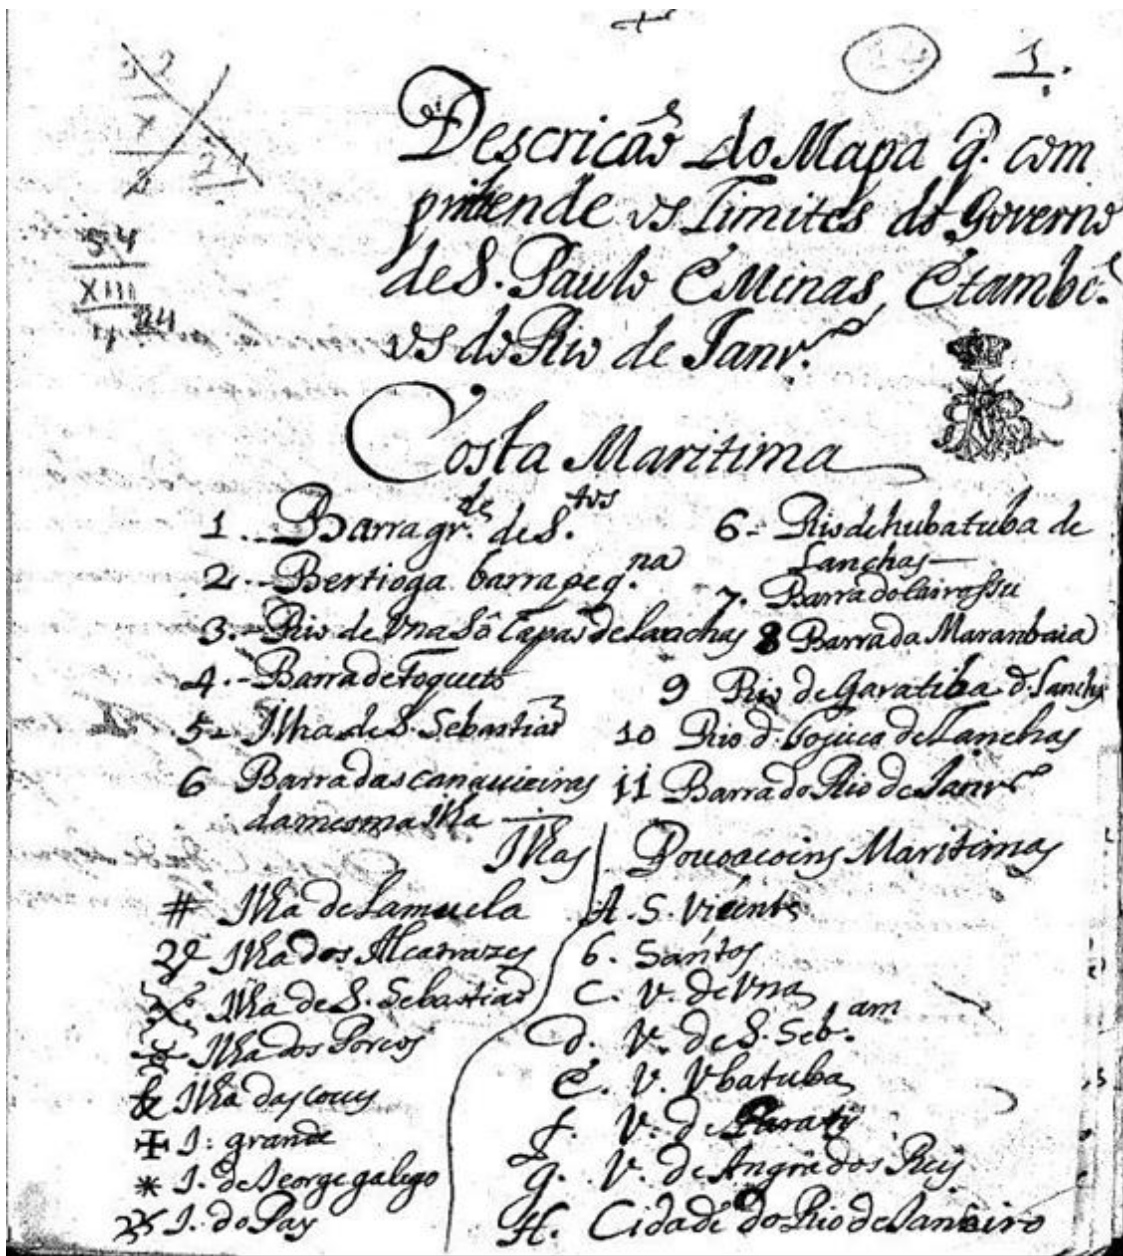 1.
54
XIII
Descricão do Mapa q. com
prihende os Limites do Governo
de S. Paulo E Minas, E tambẽ.
os do Rio de Janr.º
Costa Maritima
1.. Barra gr.de de S.tos
2.. Bertioga barra peq.na
3.- Rio de Una Só Capas de Lanchas
4.- Barra de Toqueto
5- Ilha de S. Sebastiaõ
6 Barra das canquieiras
da mesma Ilha
6- Rio de hubatuba de
Lanchas
7. Barra do Cairossu
8 Barra da Maranbaia
9 Rio de Garatiba d. Lanchas
10 Rio d. Tojuca de Lanchas
11 Barra do Rio de Janr.º
Ilhas
# Ilha de Lamuela
Ilha dos Alcatrazes
Ilha de S. Sebastiaõ
Ilha dos Porcos
Ilha das couves
I: grande
I. de Jeorge galego
I. do Pay
Povoacoins Maritimas
A. S. Vicente
b. Santos
C. V. de Una
d. V. de S. Seb.am
E. V. Ubatuba
f. V. de Parati
g. V. de Angra dos Reis
H. Cidade do Rio de Janeiro